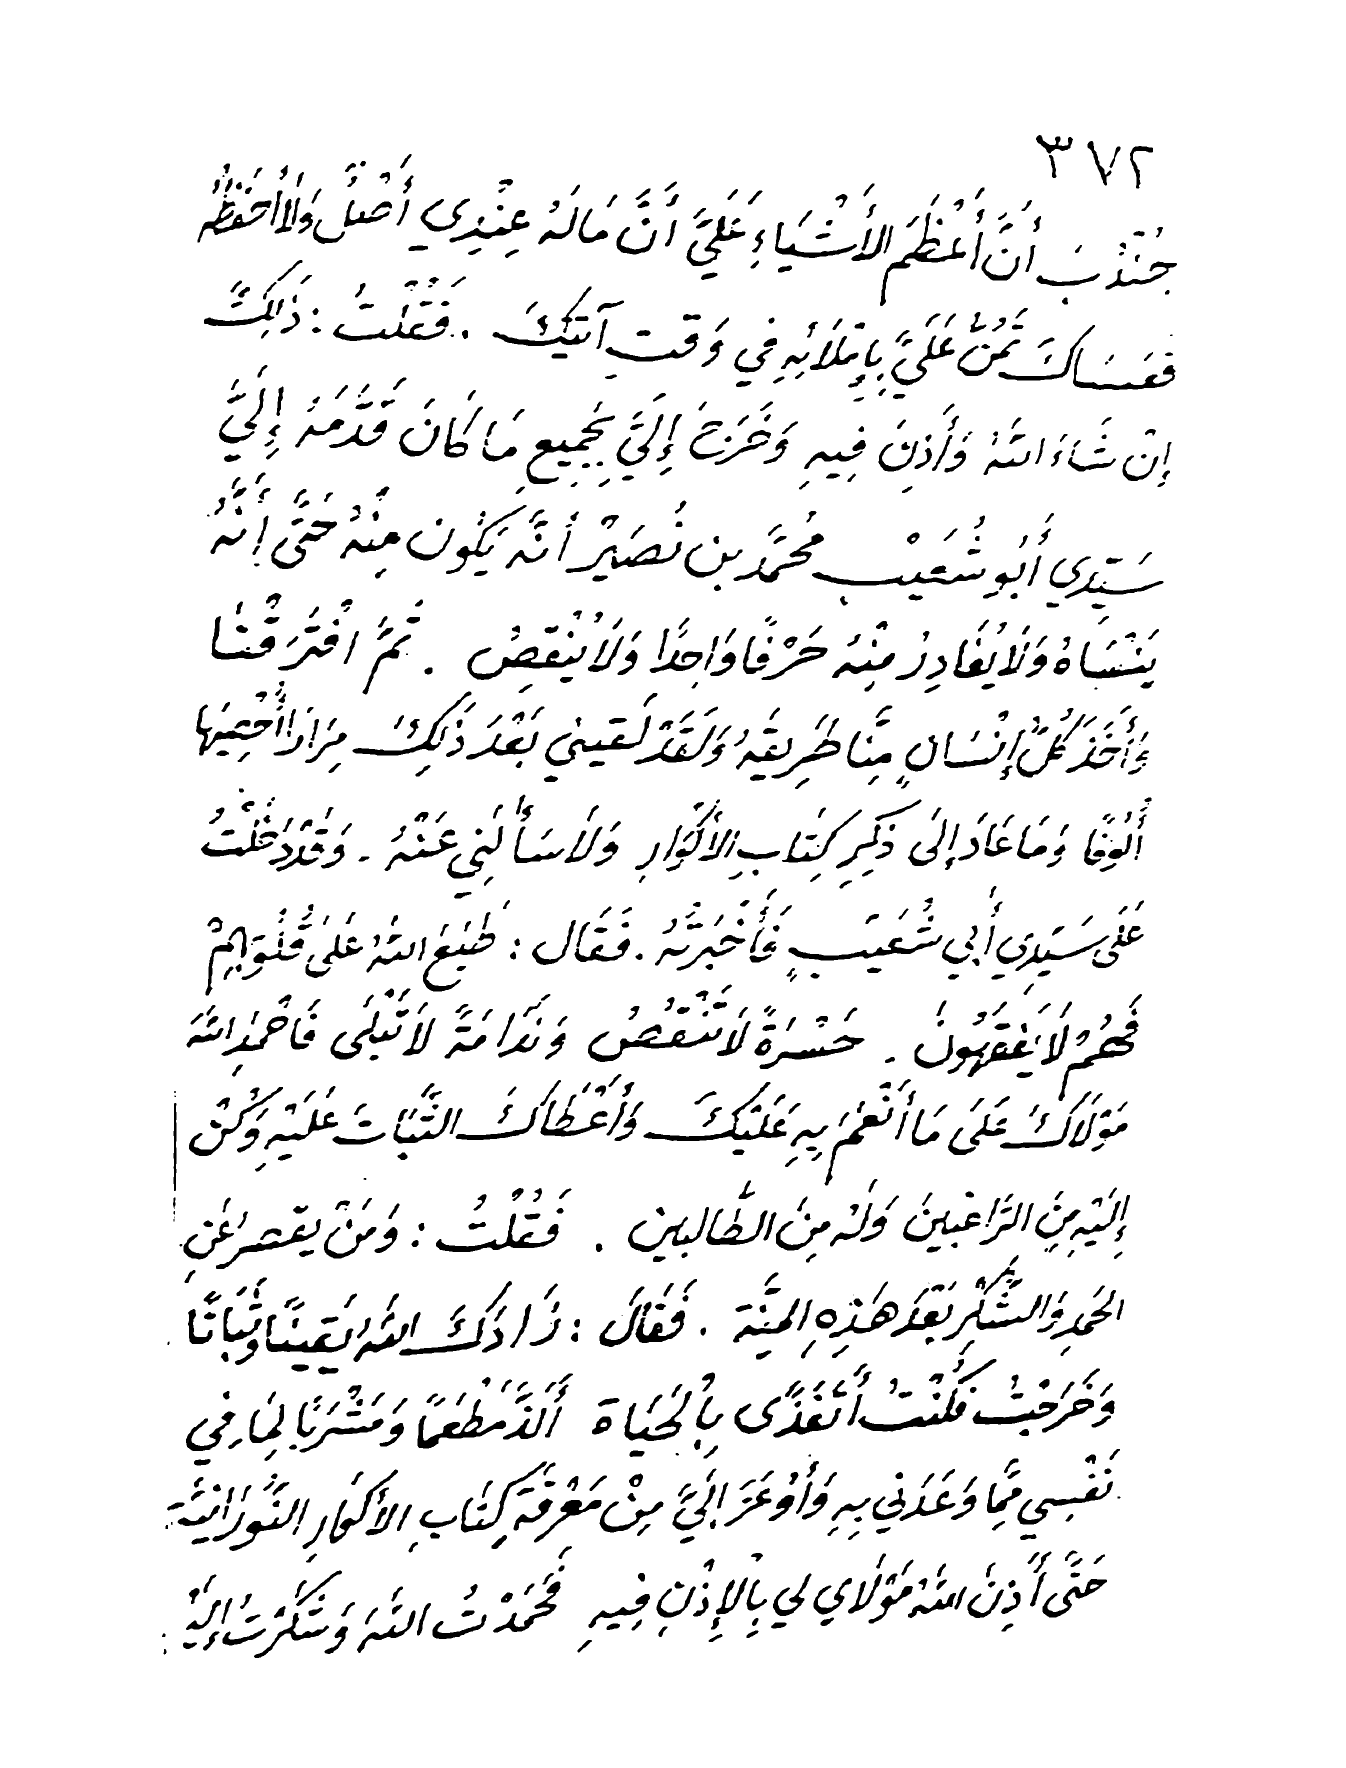 ٣٧٢
جُنْدُبَ أَنَّ أَعْظَمَ الأَشْيَاءِ عَلَيَّ أَنَّ مَا لَهُ عِنْدِي أَصْلٌ وَلَا أَحْفَظُهُ
فَعَسَاكَ تَمُنُّ عَلَيَّ بِإِمْلَائِهِ فِي وَقْتِ آتِيكَ . فَقُلْتُ : ذَلِكَ
إِنْ شَاءَ اللهُ وَأَذِنَ فِيهِ وَخَرَجَ إِلَيَّ بِجَمِيعِ مَا كَانَ قَدَّمَهُ إِلَيَّ
سَيِّدِي أَبُو شُعَيْب مُحَمَّد بن نُصَيْر أَنَّه يَكُون مِنْهُ حَتَّى إِنَّهُ
يَنْسَاهُ وَلَا يُغَادِرُ مِنْهُ حَرْفًا وَاحِدًا وَلَا يُنْقِصُ . ثُمَّ افْتَرَقْنَا
وَأَخَذَ كُلُّ إِنْسَانٍ مِنَّا طَرِيقَهُ وَلَقَدْ لَقِيَنِي بَعْدَ ذَلِكَ مِرَارًا أُحْصِيَهَا
أُلُوفًا وَمَا عَادَ إِلَى ذِكْرِ كِتَابِ الأَكْوَارِ وَلَا سَأَلَنِي عَنْهُ . وَقَدْ دَخَلْتُ
عَلَى سَيِّدِي أَبِي شُعَيْبٍ فَأَخْبَرْتُهُ . فَقَال : طَبَعَ اللهُ عَلَى قُلُوبِهِمْ
فَهُمْ لَا يَفْقَهُونَ . حَسْرَةً لَا تَنْقُصُ وَنَدَامَةً لَا تَبْلَى فَاحْمَدِ اللهَ
مَوْلَاكَ عَلَى مَا أَنْعَمَ بِهِ عَلَيْكَ وَأَعْطَاكَ الثَّبَاتَ عَلَيْهِ وَكُنْ
إِلَيْهِ مِنَ الرَّاغِبِينَ وَلَهُ مِنَ الطَّالِبِين . فَقُلْتُ : وَمَنْ يقصر عَنِ
الحَمدِ وَالشُّكْرِ بَعْدَ هَذِهِ المِنَّة . فَقَالَ : زَادَكَ اللهُ يَقِينًا وَثَبَاتًا
وَخَرَجْتُ فَكُنْتُ أَتَغَذَّى بِالْحَيَاة أَلَذَّ مَطْعَمًا وَمَشْرَبًا لِمَا فِي
نَفْسِي مِمَّا وَعَدَنِي بِهِ وَأَوْعَزَ إِلَيَّ مِنْ مَعْرِفَةِ كِتَابِ الأَكْوَارِ النُّورَانِيَّة
حَتَّى أَذِنَ اللهُ مَوْلَاي لِي بِالإِذْنِ فِيهِ فَحَمَدْتُ اللهَ وَشَكَرْتُ إِلَيْهِ